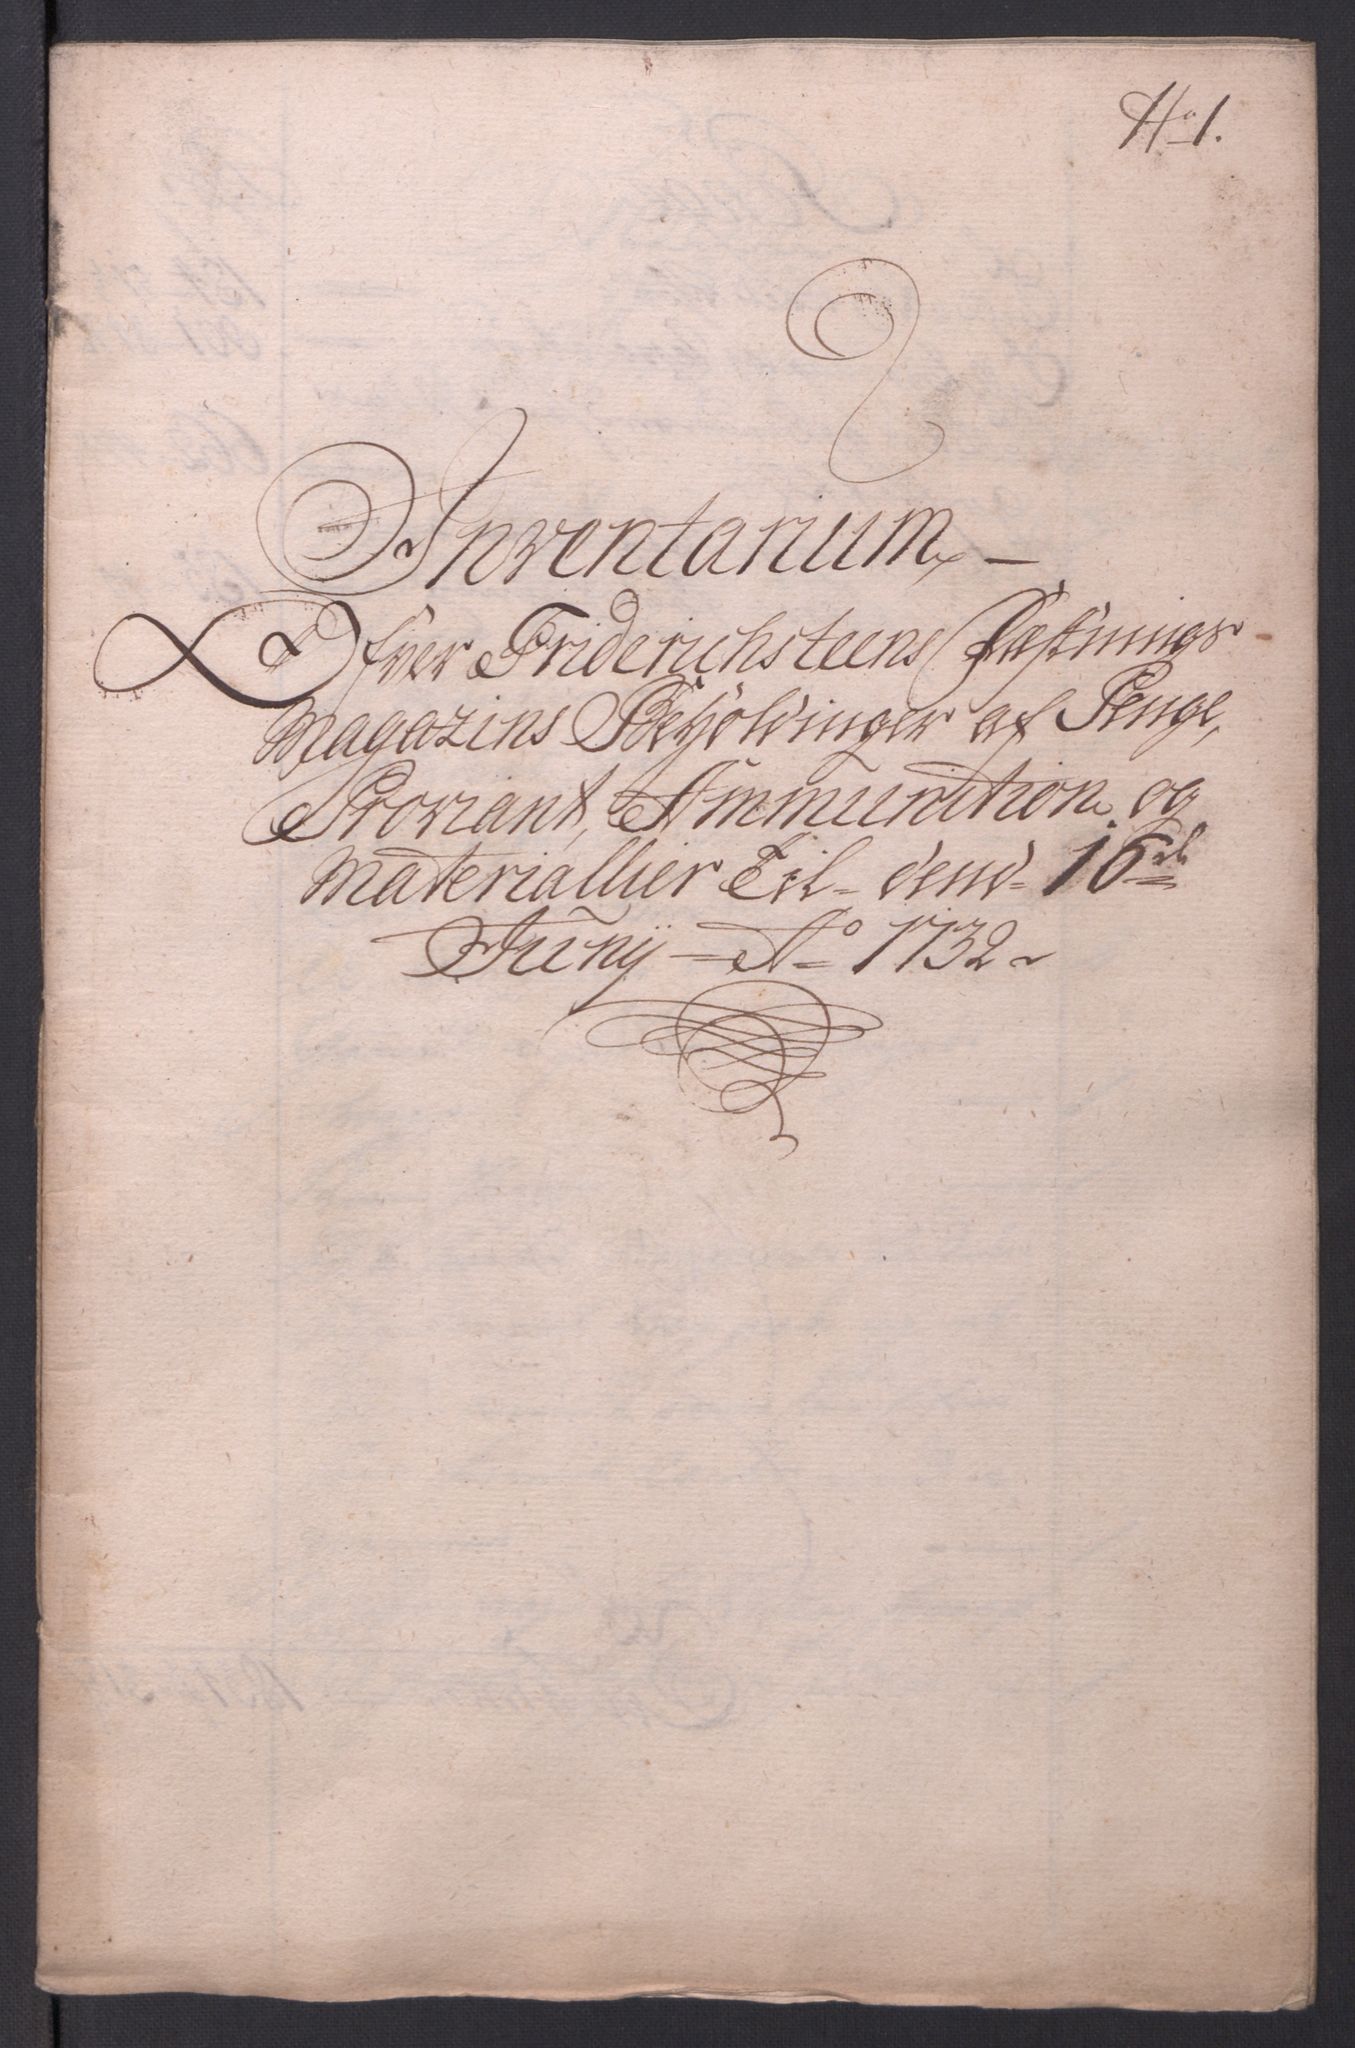 No 1.
Inventarium
Ofver Friderichsteens Fæstnings
Magazins Behóldninger af Penge,
Proviant, Ammunition og
Materiallier Til dend 16de
Junij Ao 1732